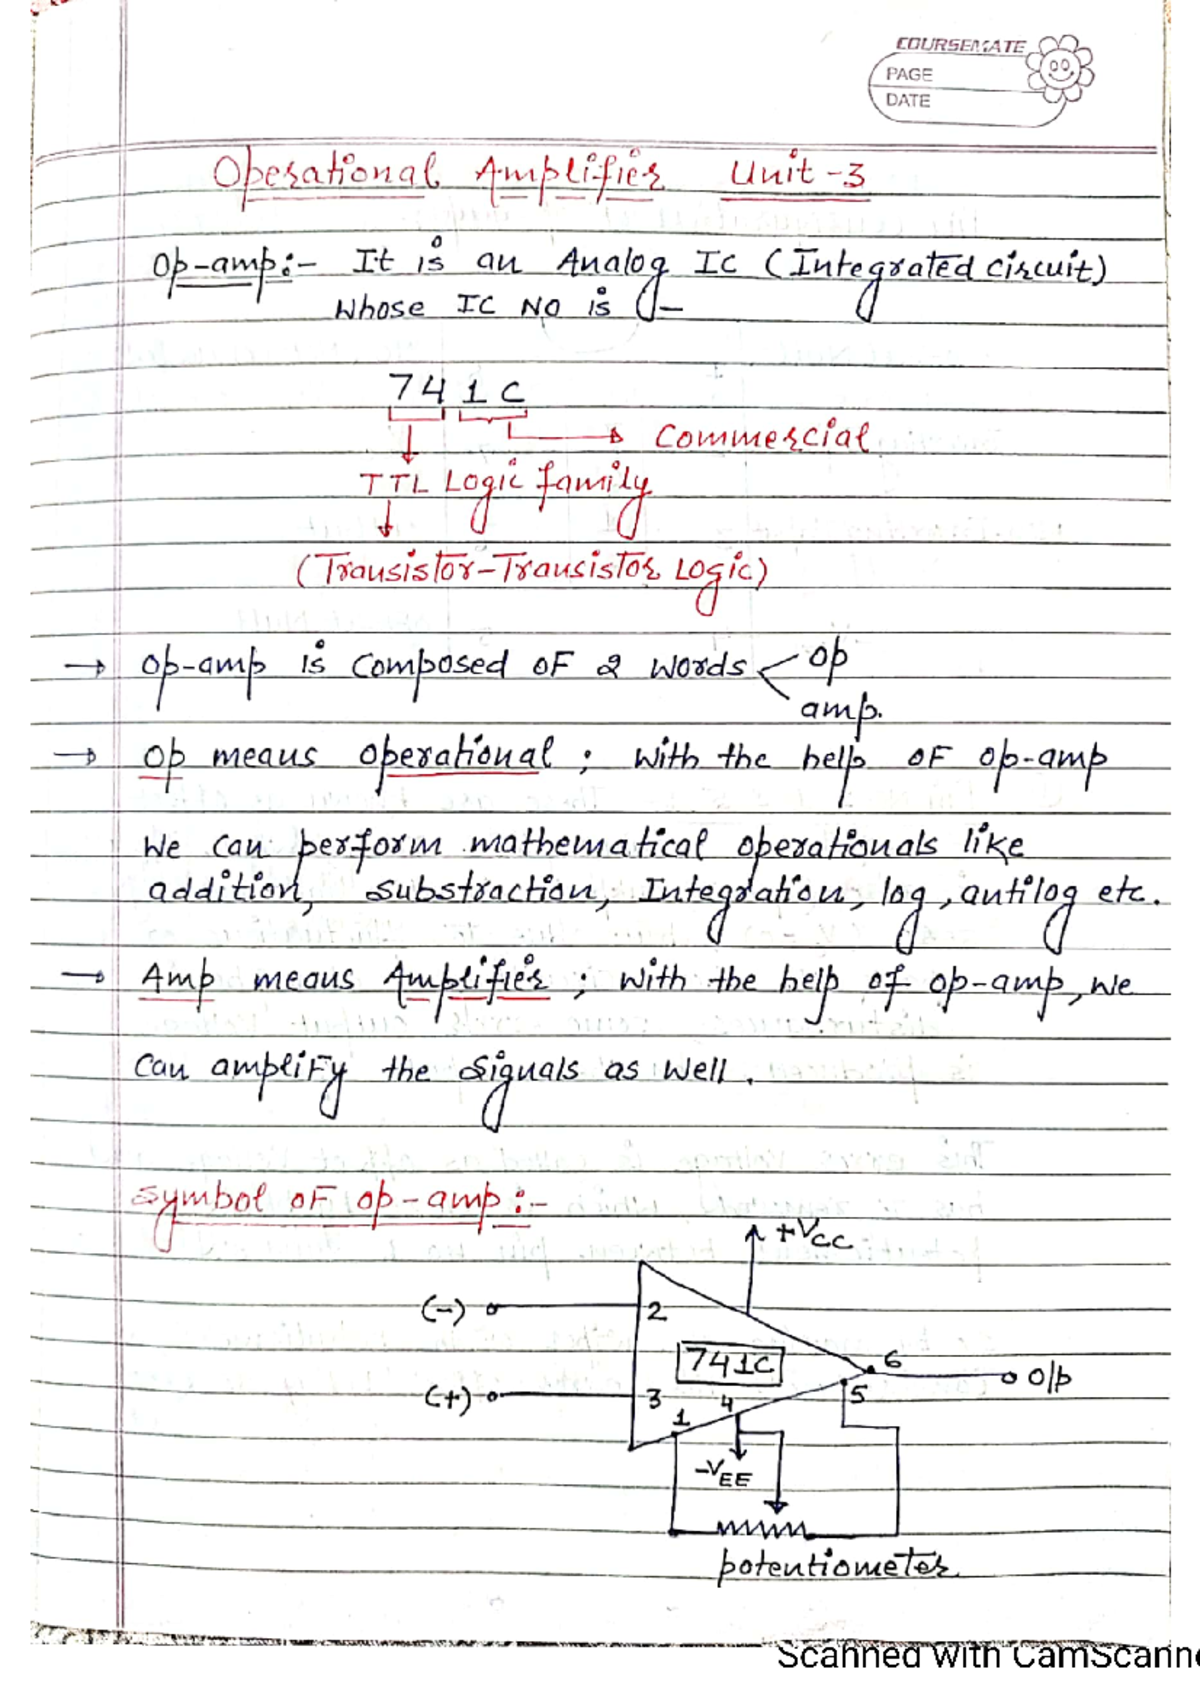 COURSEMATE
PAGE
DATE
Operational Amplifier Unit-3
Op-amp:- It is an Analog IC (Integrated circuit)
Whose IC NO is :-
741C
Commercial
TTL Logic family
(Transistor-Transistor Logic)
→ Op-amp is composed OF 2 words < op
amp.
→ Op means operational ; With the help OF op-amp
We can perform mathematical operationals like
addition, substraction, Integration, log, antilog etc.
→ Amp means Amplifier ; With the help of op-amp, we
can amplify the signals as well.
Symbol OF op-amp :-
+VCC
(-) 2
741C
6 O/p
(+) 3
1 4 5
-VEE
potentiometer
Scanned with CamScanne